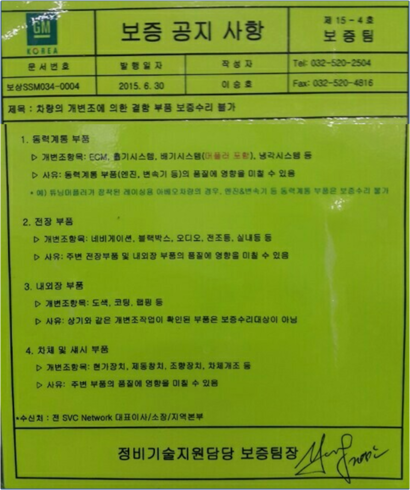 GM
KOREA
보증 공지 사항
제 15-4호
보증팀
문서번호
발행일자
작성자
Tel: 032-520-2504
보상SSM034-0004
2015. 6. 30
이승호
Fax: 032-520-4816
제목 : 차량의 개변조에 의한 결함 부품 보증수리 불가
1. 동력계통 부품
▷ 개변조항목: ECM, 흡기시스템, 배기시스템(머플러 포함), 냉각시스템 등
▷ 사유: 동력계통 부품(엔진, 변속기 등)의 품질에 영향을 미칠 수 있음
* 예) 튜닝머플러가 장착된 레이싱용 아베오차량의 경우, 엔진&변속기 등 동력계통 부품은 보증수리 불가
2. 전장 부품
▷ 개변조항목: 네비게이션, 블랙박스, 오디오, 전조등, 실내등 등
▷ 사유: 주변 전장부품 및 내외장 부품의 품질에 영향을 미칠 수 있음
3. 내외장 부품
▷ 개변조항목: 도색, 코팅, 랩핑 등
▷ 사유: 상기와 같은 개변조작업이 확인된 부품은 보증수리대상이 아님
4. 차체 및 섀시 부품
▷ 개변조항목: 현가장치, 제동장치, 조향장치, 차체개조 등
▷ 사유: 주변 부품의 품질에 영향을 미칠 수 있음
*수신처: 전 SVC Network 대표이사/소장/지역본부
정비기술지원담당 보증팀장